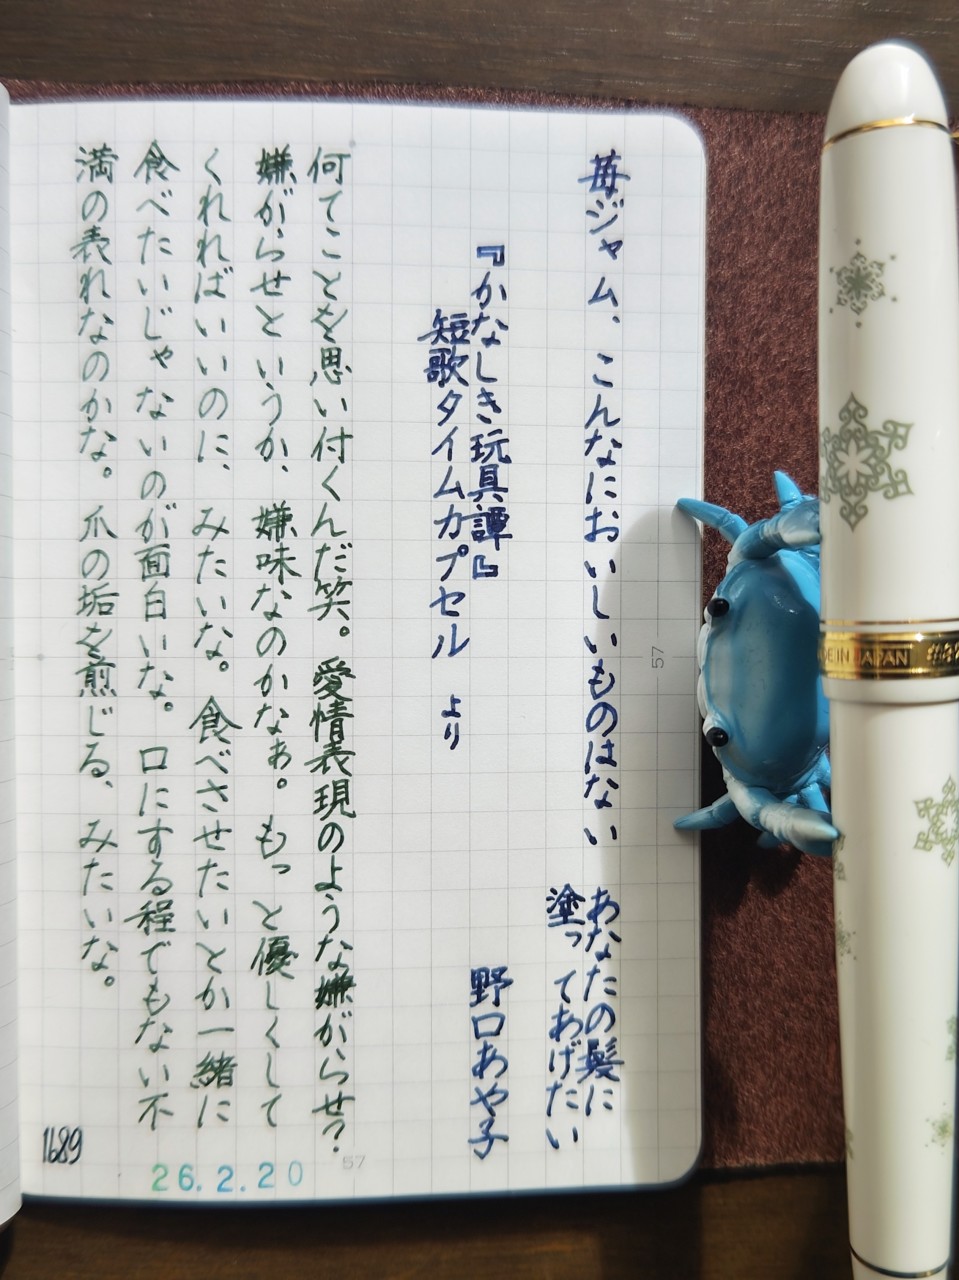 苺ジャム、こんなにおいしいものはない
あなたの髪に
塗ってあげたい
『かなしき玩具譚』
短歌タイムカプセル より
野口あや子
何てことを思い付くんだ笑。愛情表現のような嫌がらせ?
嫌がらせというか、嫌味なのかなぁ。もっと優しくして
くれればいいのに、みたいな。食べさせたいとか一緒に
食べたいじゃないのが面白いな。口にする程でもない不
満の表れなのかな。爪の垢を煎じる、みたいな。
1689
26.2.20
57
57
JAPAN